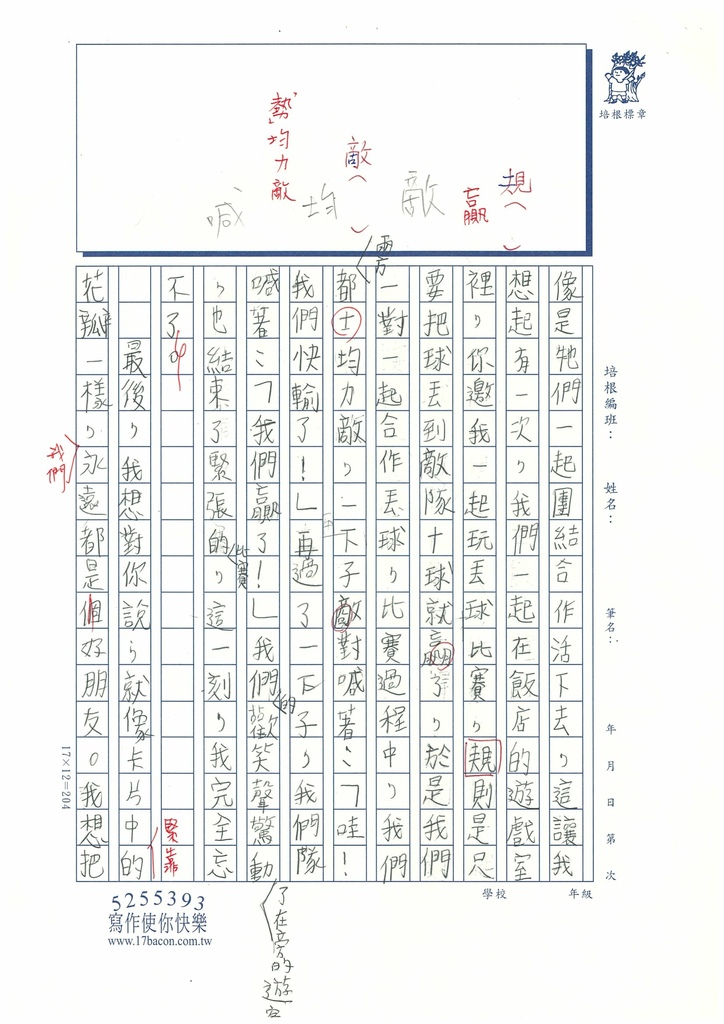 勢均力敵
敵（　）
規（　）
贏
喊
均
敵
培根標章
培根編班：　姓名：　筆名：　年　月　日　第　次
像是牠們一起團結合作活下去，這讓我
想起有一次，我們一起在飯店的遊戲室
裡，你邀我一起玩丟球比賽，規則是只
要把球丟到敵隊十球就贏了，於是我們
一對一起合作丟球，比賽過程中，我們
雙方
都士均力敵，一下子敵對喊著：「哇！
我們快輸了！」再過了一下子，我們隊
喊著：「我們贏了！」我們歡笑聲驚動
們
了在旁的遊客
，也結束了緊張的，這一刻，我完全忘
比賽
不了。
最後，我想對你說，就像卡片中的
緊靠
花瓣一樣，永遠都是個好朋友。我想把
我們
17×12=204
學校　年級
5255393
寫作使你快樂
www.17bacon.com.tw